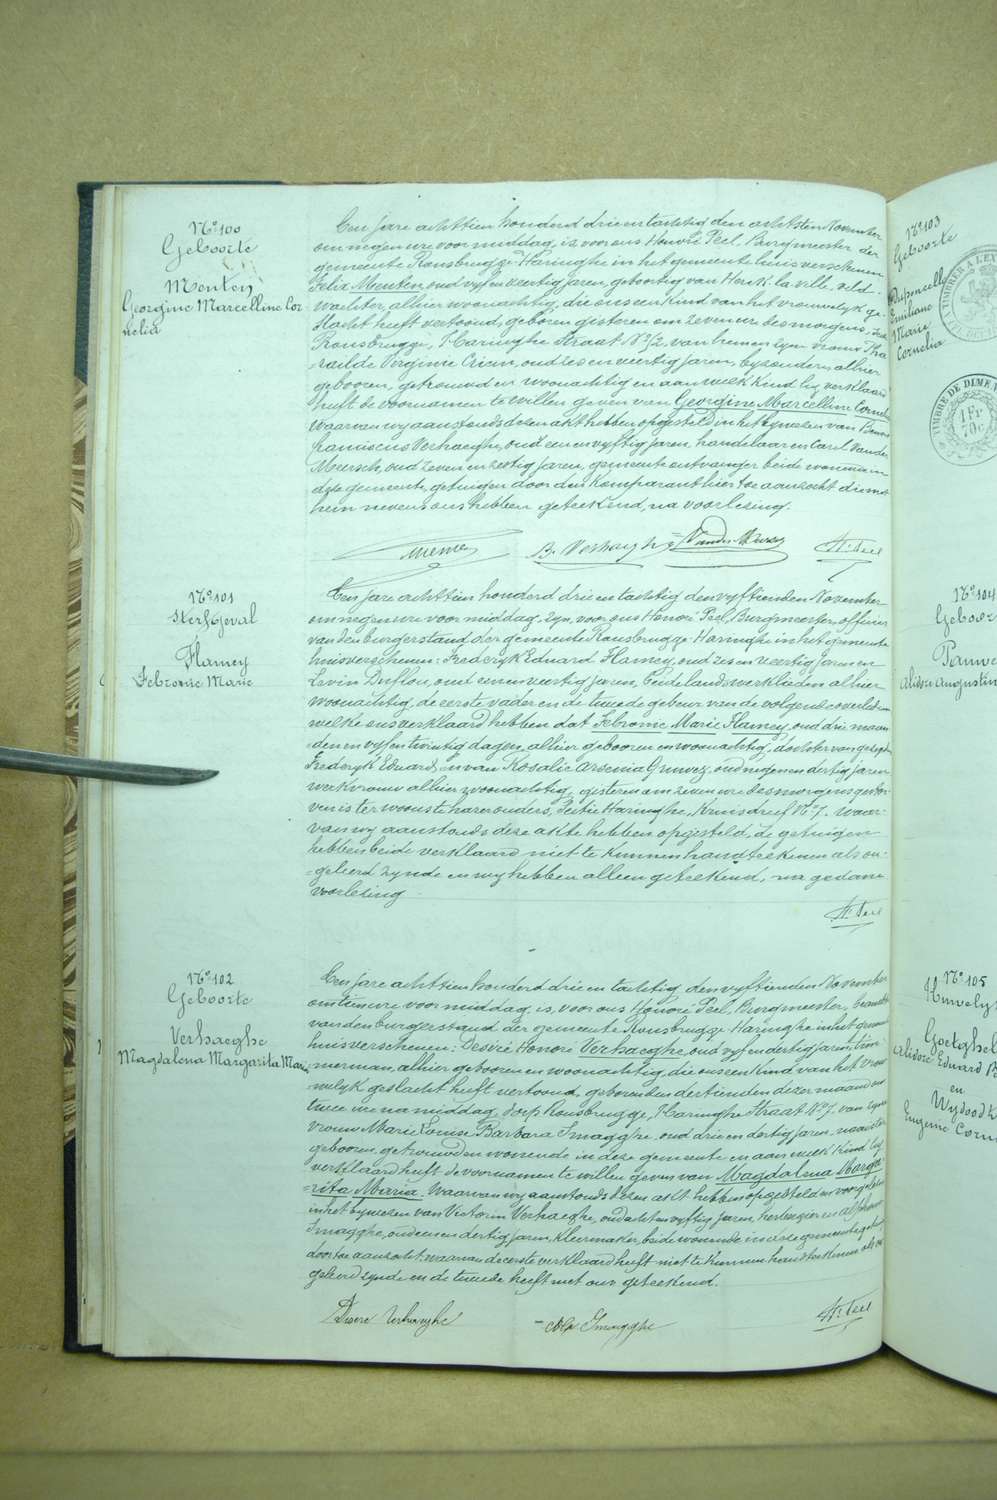 Nº 100
Geboorte
Menten
Georgine Marcelline Cor
nelia
Een jare achttien honderd drie en tachtig den achtsten November
om negen ure voor middag, is, voor ons Honoré Peel, Burgmeester der
gemeente Rousbrugge-Haringhe in het gemeente huis verschenen
Felix Menten, oud vyf en veertig jaren, geboortig van Herck la ville, veld-
wachter, alhier woonachtig, die ons een kind van het vrouwelyk ge-
slacht heeft vertoond, geboren gisteren om zeven ure des morgens,
Rousbrugge, Haringhe Straat Nº 2, van hem en zyne vrouw Pha
raïlde Virginie Crion, oud zes en veertig jaren, byzondere, alhier
gebooren, getrouwd en woonachtig en aan welk kind hy verklaard
heeft de voornamen te willen geven van Georgine Marcelline Cornelia
Waarvan wy aanstonds dezen akt hebben opgesteld in het bywezen van
Franciscus Verhaeghe, oud een en vyftig jaren, handelaar en Carel Vander
Meersch, oud zeven en zestig jaren, gemeente ontvanger beide wonende in
deze gemeente, getuigen door den komparant hier toe aanzocht die met
hem nevens ons hebben geteekend, na voorlezing.
B. Verhaeghe Vander Meersch H. Peel
Nº 101
Sterfgeval
Flamey
Febronie Marie
Een jare achttien honderd drie en tachtig den vyftienden November
om negen ure voor middag, zyn, voor ons Honoré Peel, Burgmeester, officier
van den burgerstand der gemeente Rousbrugge-Haringhe in het gemeente
huis verschenen: Frederyk Eduard Flamey, oud zes en veertig jaren en
Livin Duflou, oud een en veertig jaren, beide landswerklieden alhier
woonachtig, de eerste vader en de tweede gebuer van de volgende overledene
welke ons verklaard hebben dat Febronie Marie Flamey, oud drie maan
den en vyf en twintig dagen, alhier gebooren en woonachtig, dochter van gezegden
Frederyk Eduard, en van Rosalie Arsenia Gruwez, oud negen en dertig jaren
werkvrouw alhier woonachtig, gisteren om zeven ure des morgens gestor
ven is ter wooonste harer ouders, Haringhe, Kruisdreef Nº 7. Waar-
van wy aanstonds deze akte hebben opgesteld, de getuigen
hebben beide verklaard niet te kunnen handteekenen als on-
geleerd zynde en wy hebben alleen geteekend, na gedane
voorlezing
H. Peel
Nº 102
Geboorte
Verhaeghe
Magdalena Margarita Maria
Een jare achttien honderd drie en tachtig den vyftienden November
om tien ure voor middag, is, voor ons Honoré Peel, Burgmeester,
van den burgerstand der gemeente Rousbrugge Haringhe in het gemeente
huis verschenen: Desiré Honoré Verhaeghe, oud vyf en dertig jaren, tim-
merman, alhier gebooren en woonachtig, die ons een kind van het vrou
welyk geslacht heeft vertoond, geboren den dertienden dezer maand om
twee ure na middag, dorp Rousbrugge, Haringhe Straat Nº 7. van zyne
vrouw Marie Louise Barbara Smagghe, oud drie en dertig jaren, naaister
gebooren, getrouwd en wonende in deze gemeente en aan welk kind hy
verklaard heeft de voornamen te willen geven van Magdalena Marga
rita Maria. Waarvan wy aanstonds dezen akt hebben opgesteld en voorgelezen
in het bywezen van Victorin Verhaeghe, oud acht en vyftig jaren, herbergier en Alphons
Smagghe, oud een en dertig jaren, kleermaker, beide wonende in deze gemeente, getuigen
daertoe aanzocht, waarvan de eerste verklaard heeft niet te kunnen handteekenen als on
geleerd zynde en de tweede heeft met ons geteekend.
Desiré Verhaeghe Alph Smagghe H. Peel
Nº 103
Geboorte
Duponcelle
Emiliane
Marie
Cornelia
TIMBRE DE DIMEN
1 Fr
70 c
Nº 104
Geboor
Pauwe
Alidore Augustin
Nº 105
Huwely
Goetghel
Alidore Eduard
en
Wydoodt
Eugenie Corne